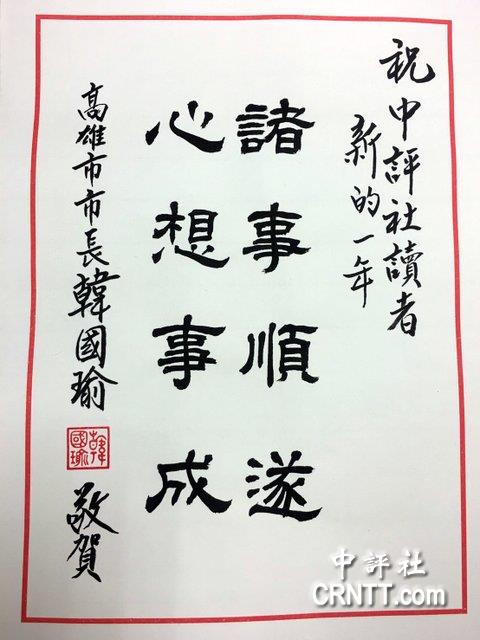 祝中評社讀者
新的一年
諸事順遂
心想事成
高雄市市長韓國瑜
韓國瑜
敬賀
中評社
CRNTT.com